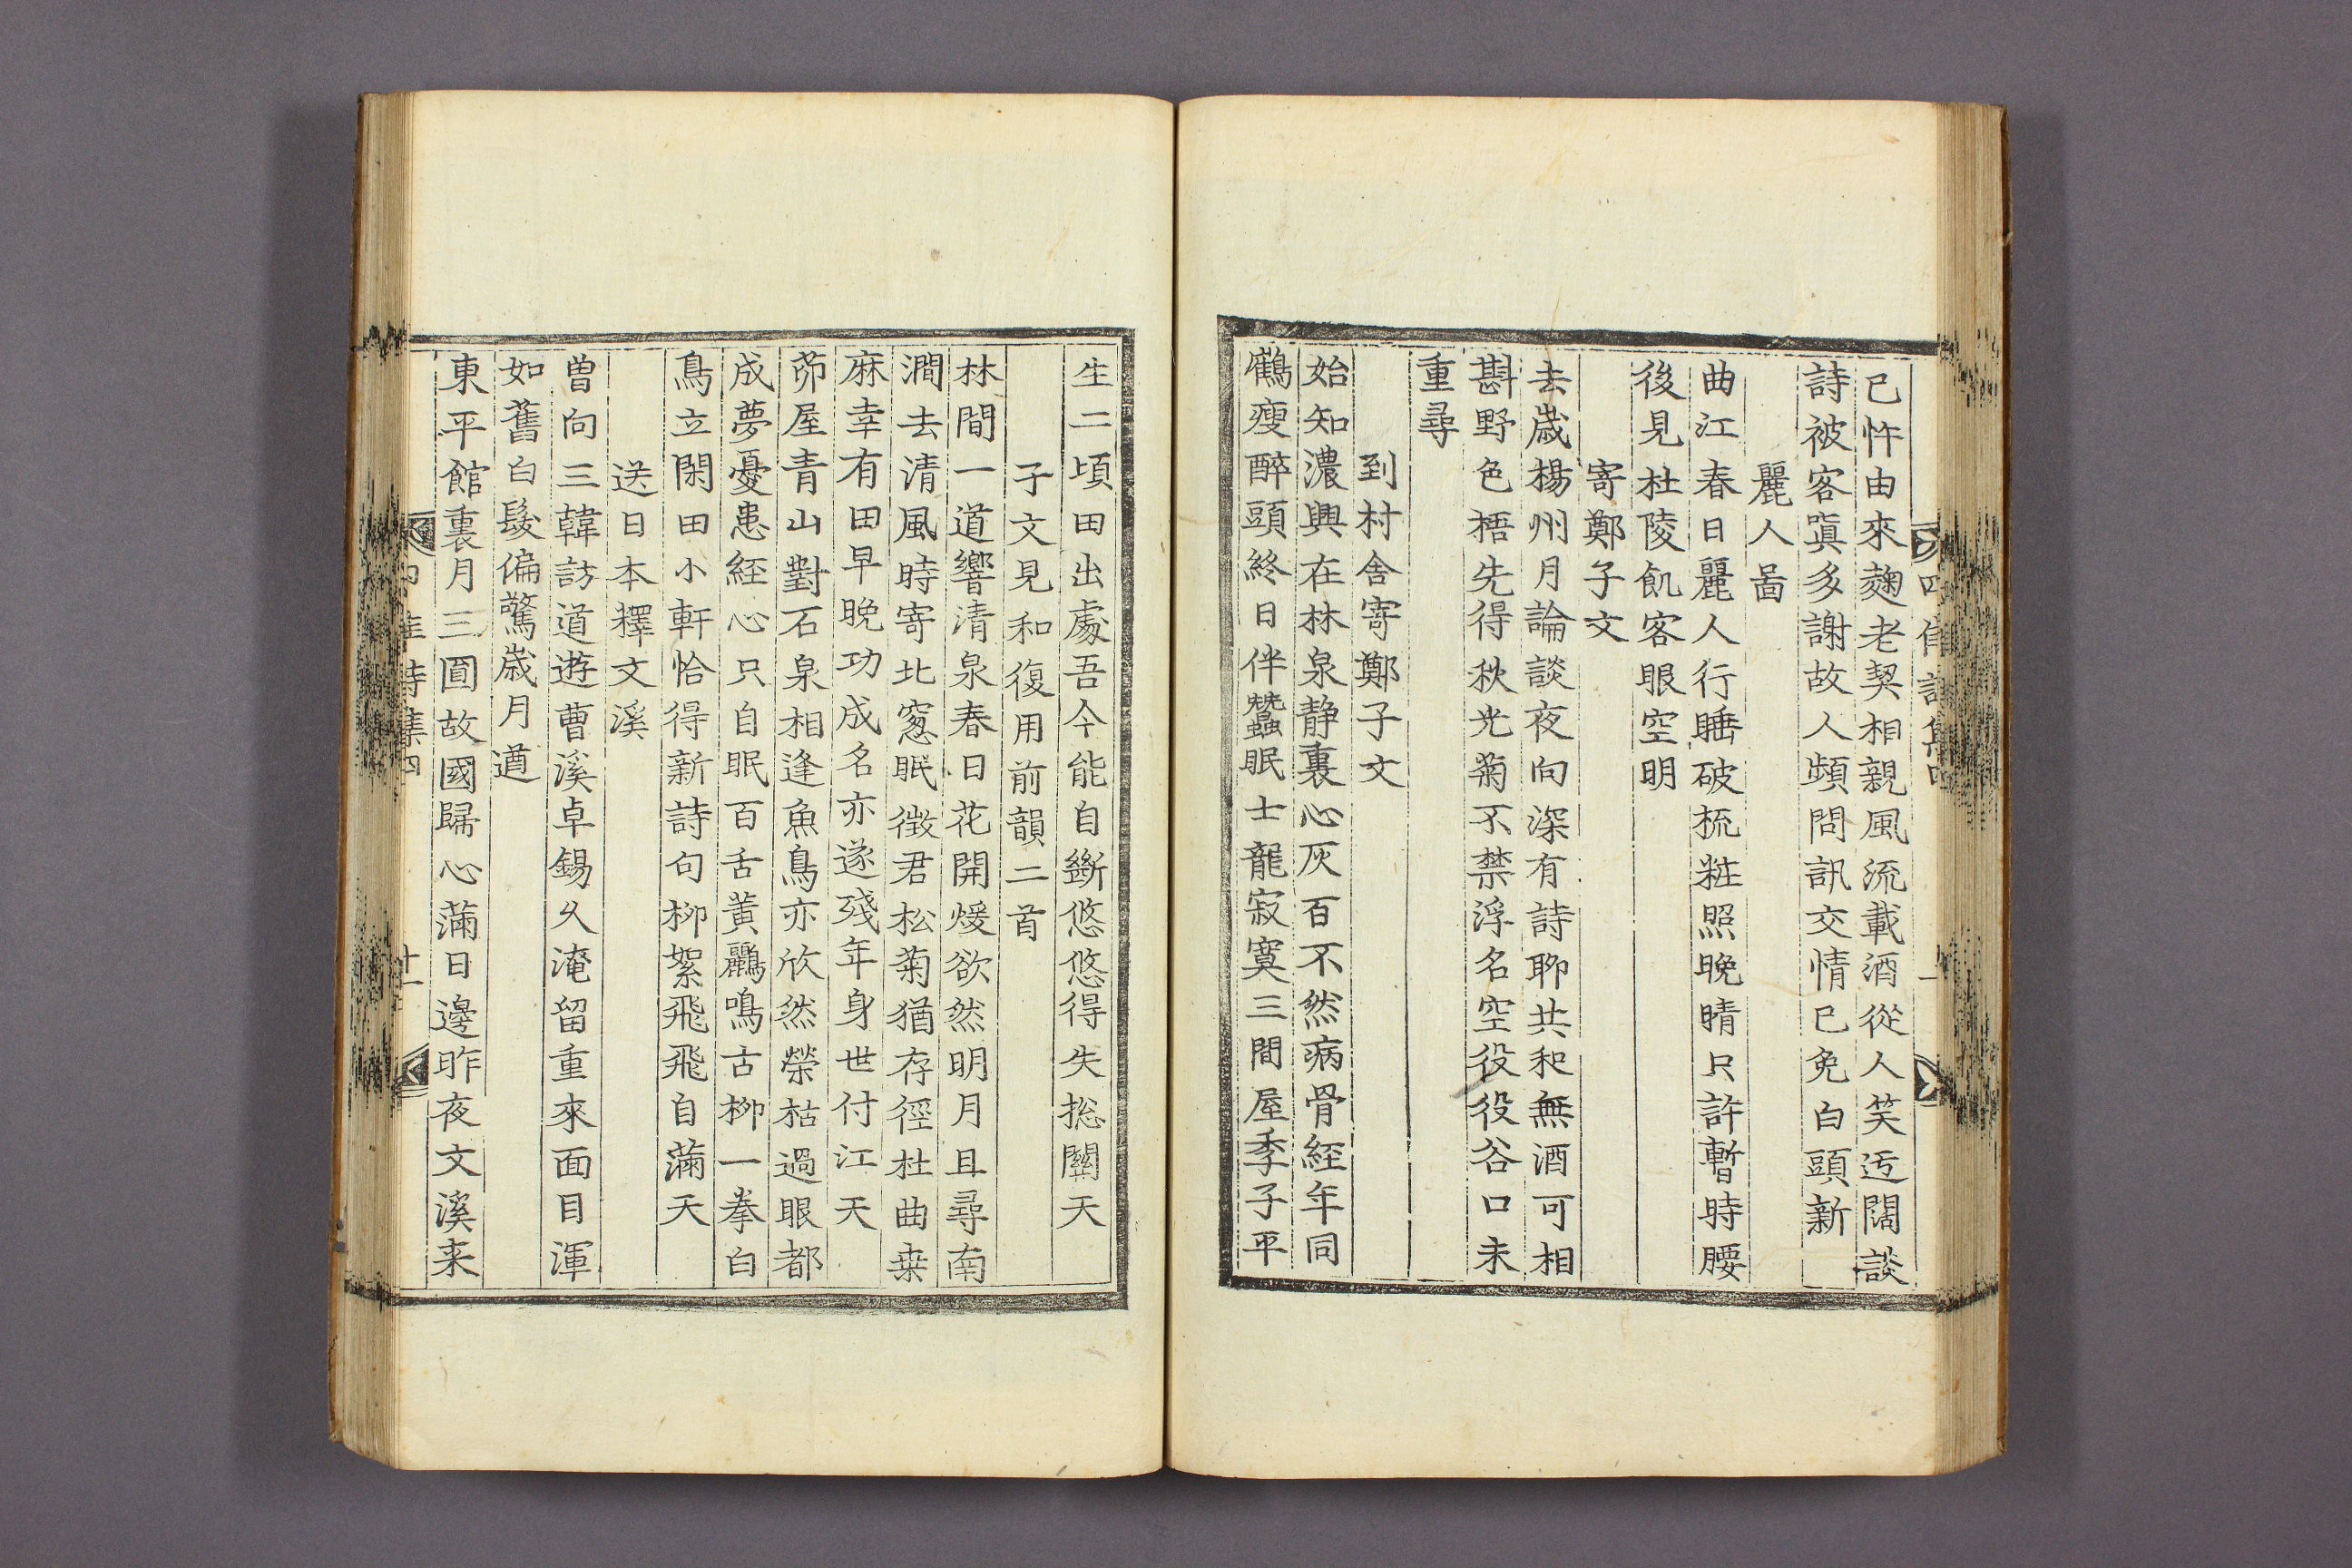 已忤由來麹老契相親風流載酒從人笑迃闊談
詩被客嗔多謝故人頻問訊交情已免白頭新
麗人啚
曲江春日麗人行睡破梳粧照晚晴只許暫時腰
後見杜陵飢客眼空明
寄鄭子文
去歲楊州月論談夜向深有詩聊共和無酒可相
斟野色梧先得秋光菊不禁浮名空役役谷口未
重尋
到村舍寄鄭子文
始知濃興在林泉静裏心灰百不然病骨經年同
鶴瘦醉頭終日伴蠶眠士龍寂寞三間屋季子平
生二頃田出處吾今能自斷悠悠得失揔關天
子文見和復用前韻二首
林間一道響清泉春日花開煖欲然明月且尋南
澗去清風時寄北窓眠徵君松菊猶存徑杜曲桒
麻幸有田早晚功成名亦遂殘年身世付江天
茆屋青山對石泉相逢魚鳥亦欣然榮枯過眼都
成夢憂患經心只自眠百舌黃鸝鳴古柳一拳白
鳥立閑田小軒恰得新詩句柳絮飛飛自滿天
送日本釋文溪
曾向三韓訪道遊曹溪卓錫久淹留重來面目渾
如舊白髮偏驚歲月遒
東平館裏月三圓故國歸心滿日邊昨夜文溪来